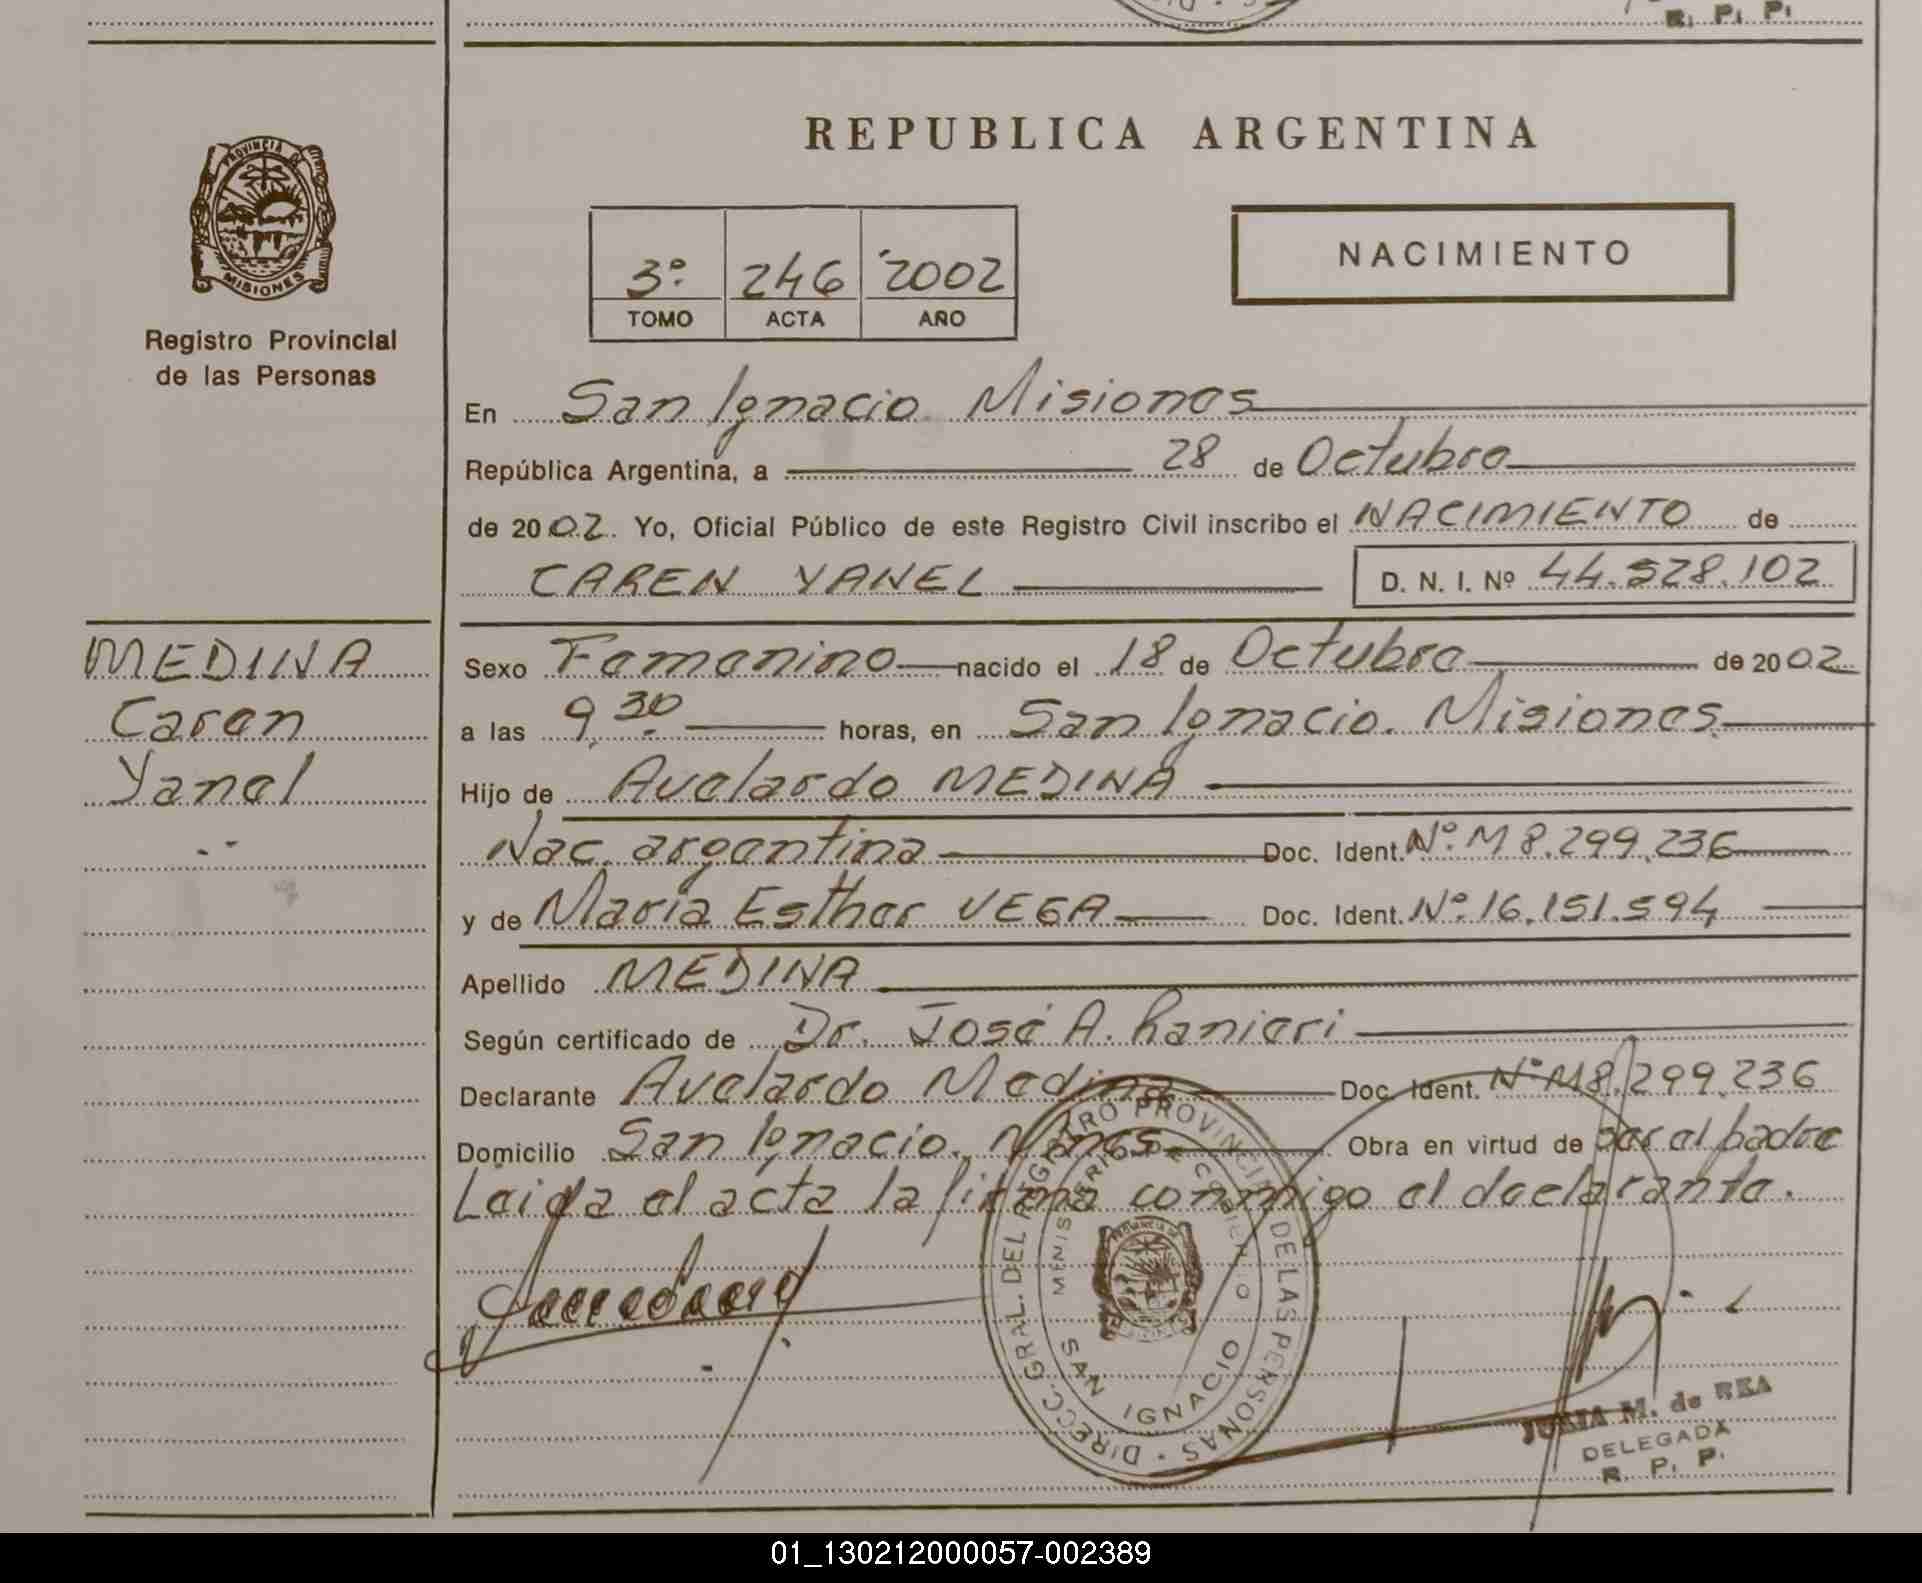 R. P. P.
REPUBLICA ARGENTINA
PROVINCIA DE
MISIONES
Registro Provincial
de las Personas
3º 246 2002
TOMO ACTA AÑO
NACIMIENTO
En San Ignacio. Misiones
República Argentina, a 28 de Octubre
de 2002. Yo, Oficial Público de este Registro Civil inscribo el NACIMIENTO de
CAREN YANEL D. N. I. Nº 44.528.102
MEDINA
Caren
Yanel
Sexo Femenino nacido el 18 de Octubre de 2002
a las 9,30 horas, en San Ignacio. Misiones
Hijo de Avelardo MEDINA
Nac. argentina Doc. Ident. Nº M 8.299.236
y de María Esther VEGA Doc. Ident. Nº 16.151.594
Apellido MEDINA
Según certificado de Dr. José A. Ranieri
Declarante Avelardo Medina Doc. Ident. Nº M8.299.236
Domicilio San Ignacio. Mnes Obra en virtud de ser el padre
Leida el acta la firma conmigo el declarante.
DIRECC. GRAL. DEL REGISTRO PROVINCIAL DE LAS PERSONAS
MINISTERIO DE GOBIERNO
SAN IGNACIO
JULIA M. de REA
DELEGADA
R. P. P.
01_130212000057-002389